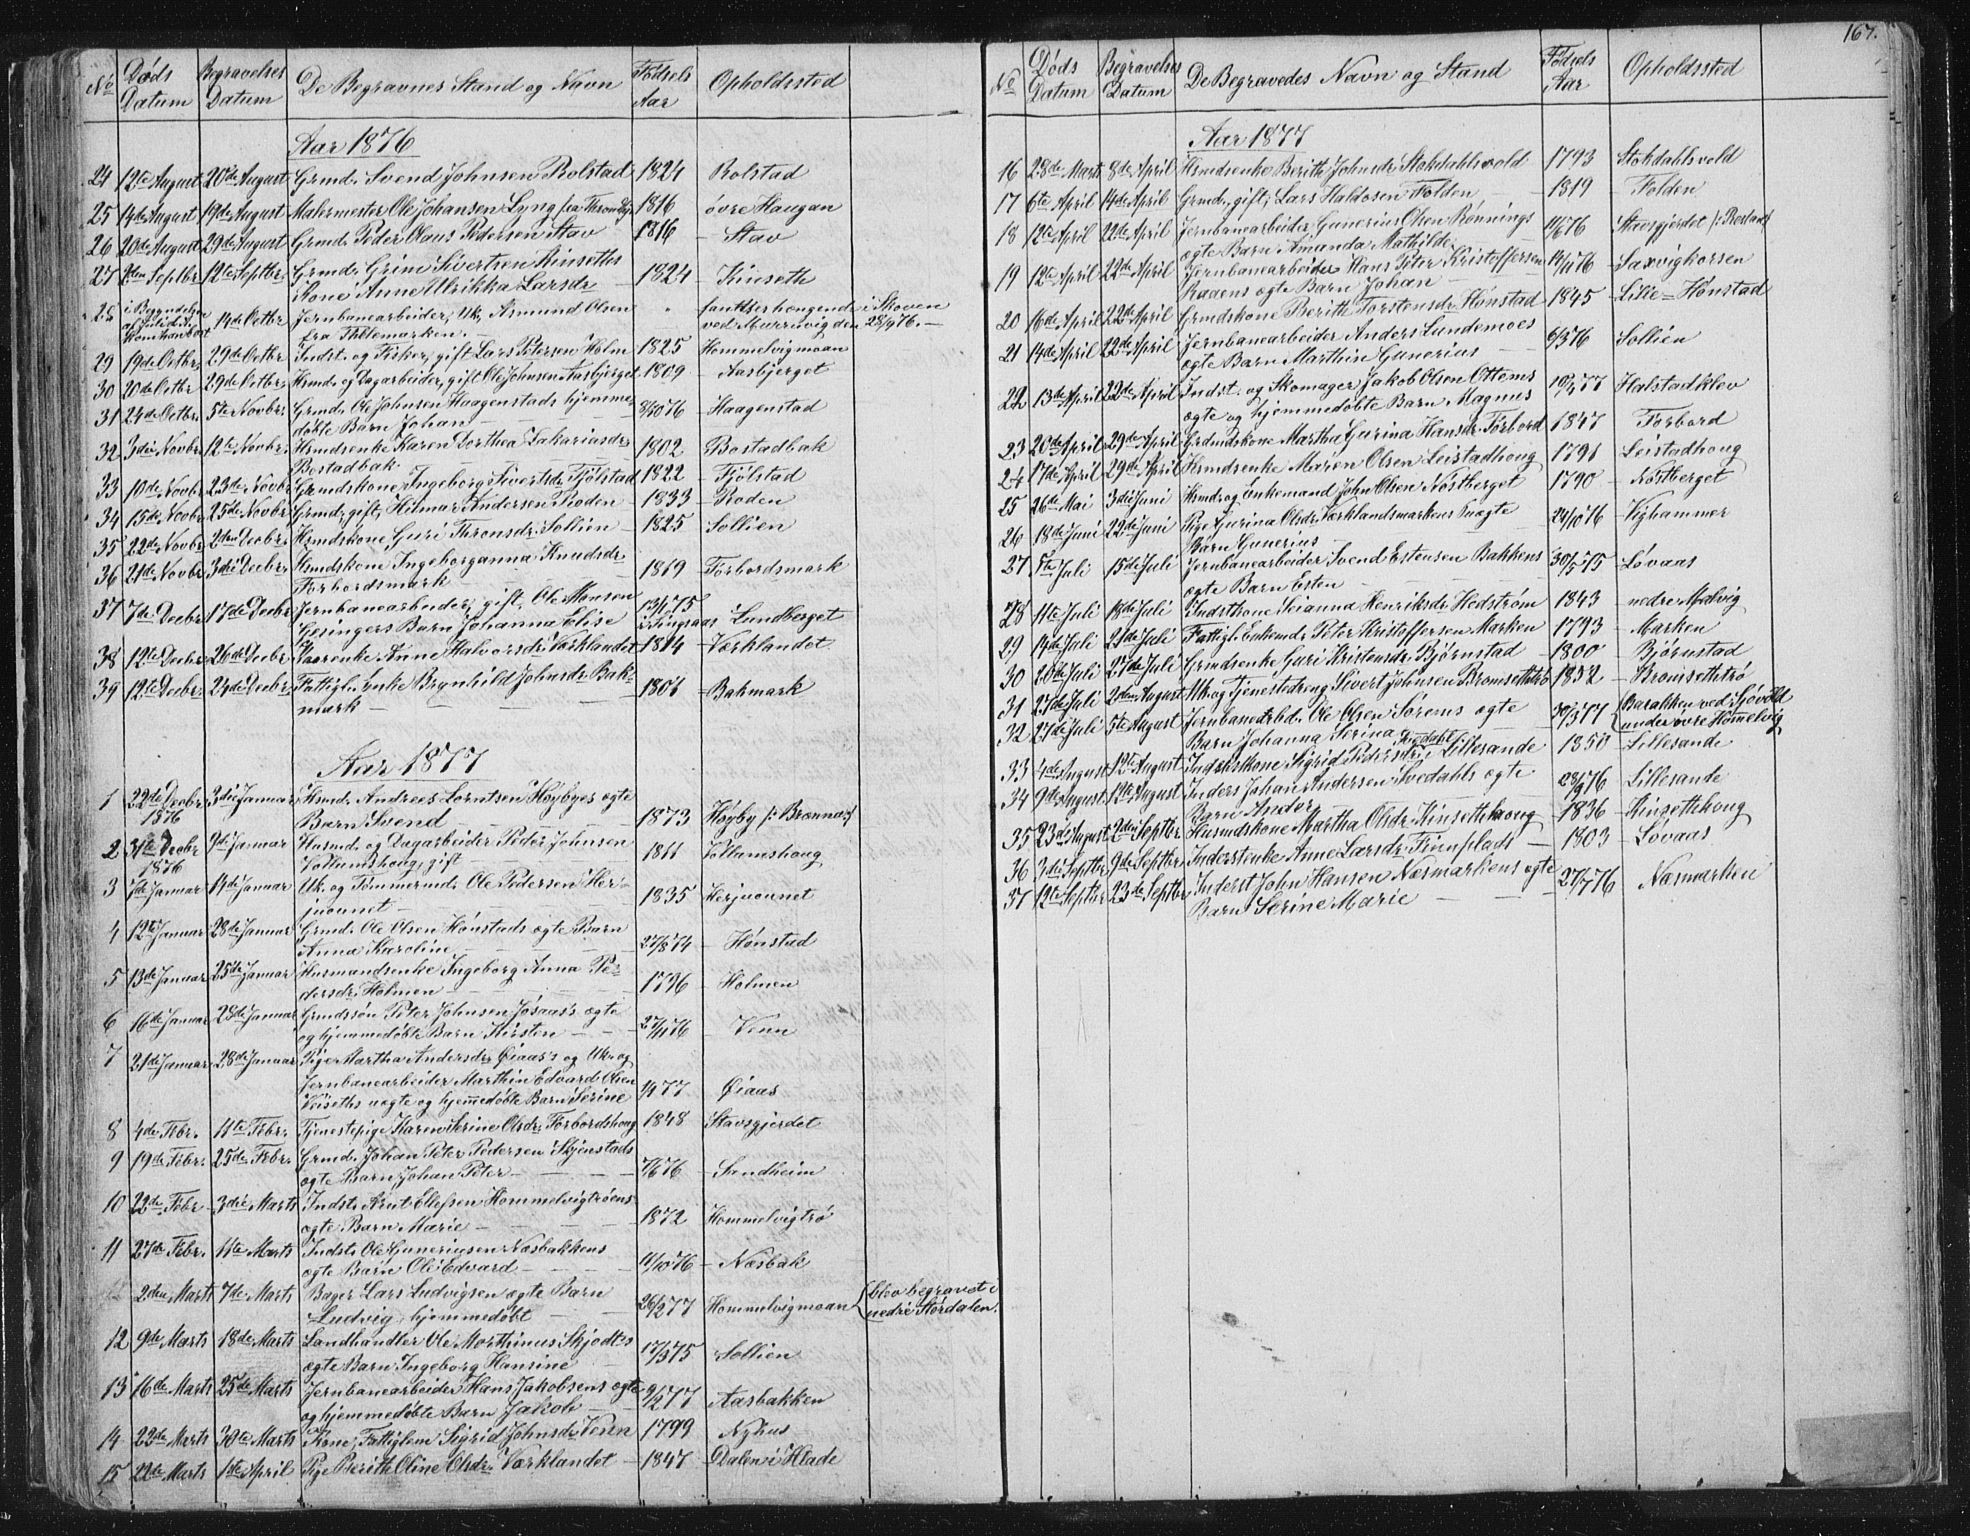 167.
No Døds Datum Begravelses Datum De Begravnes Stand og Navn Fødsels Aar Opholdssted
Aar 1876
24 12te August 20de August Grmd. Svend Johnsen Rolstad 1824 Rolstad
25 14de August 19de August Malermester Ole Johansen Lyng fra 1816 øvre Haugan
26 20de August 29de August Grmd. Peder Olaus Pedersen Stav 1816 Stav
27 2den Septbr 12te Septbr. Grmd. Grim Sivertsen Kinseths
Kone Anne Ulrikka Larsdr. 1824 Kinseth
28 i Begyndelsen af Juli 14de Octbr. Jernbanearbeider, Uk, Asmund Olsen " fandtes hængende i Skoven
fra Thelemarken. ved Muruvig den 28/9 76.
29 19de Octbr. 29de Octbr. Indst. og Fisker, gift Lars Petersen Holm 1825 Hommelvigmoan
30 20de Octbr 29de Octbr. Hsmd. og Dagarbeider, gift Ole Johnsen Aasbjerget 1809 Aasbjerget
31 24de Octbr. 5te Novbr. Grmd. Ole Johnsen Haagenstads hjemme-
døbte Barn Johan 8/10 76 Haagenstad
32 3die Novbr 12te Novbr. Hsmdsenke Karen Dorthea Zakariasdr.
Bostadbak 1802 Bostadbak
33 10de Novbr. 23de Novbr Grmdskone Ingeborg Sivertsdr. Fjølstad 1822 Fjølstad
34 15de Novbr. 25de Novbr Grmd., gift, Hilmar Andersen Roden 1833 Roden
35 22de Novbr 2den Decbr. Hsmdskone Guri Thronsdr. Sollien 1825 Sollien
36 21de Novbr 3die Decbr. Hsmdskone Ingeborganna Knudsdr.
Forbordsmark 1819 Forbordsmark
37 7de Decbr 17de Decbr Jernbanearbeider, gift, Ole Monsen
Gesingers Barn Johanna Elise 13/1 75 Sundberget
38 12te Decbr. 26de Decbr. Kaarenke Anne Halvorsdr. Værklandet 1814 Værklandet
39 12te Decbr. 24de Decbr. Fattigl. Enke Brynhild Johnsdr. Bak-
mark 1801 Bakmark
Aar 1877
1 22de Decbr. 1876 3die Januar Hsmd. Andreas Lorntsen Høybyes ægte
Barn Svend 1873 Høyby /: Brænna :/
2 31te Decbr 1876 9de Januar Husmd. og Dagarbeider Peder Johnsen
Vollumshoug, gift 1811 Vollumshoug
3 7de Januar 14de Januar Uk. og Tømmermd. Ole Pedersen Her-
juounet 1835 Herjuounet
4 12te Januar 28de Januar Grmd. Ole Olsen Hønstads ægte Barn
Anna Karoline 27/8 74 Hønstad
5 13de Januar 25de Januar Husmandsenke Ingeborg Anna Pe-
dersdr. Holmen 1796 Holmen
6 16de Januar 28de Januar Grmdssøn Peter Johnsen Jøsaas's ægte
og hjemmedøbte Barn Kirsten 27/11 76 Venn
7 21de Januar 28de Januar Pige Martha Andersdr. Øiaas's og Uk. og
Jernbanearbeider Marthin Edvard Olsen
Veiseths uægte og hjemmedøbte Barn Serine 1/1 77 Øiaas
8 4de Febr. 11te Febr. Tjenestepige Karen Serine Olsdr. Forbordshoug 1848 Stavsgjerdet
9 19de Febr. 25de Febr. Grmd. Johan Peter Pedersen Skjenstads
ægte Barn, Johan Peter 7/6 76 Sandheim
10 22de Febr 3die Marts Indst. Knut Ellefsen Hommelvigtrøens
ægte Barn Marie 1872 Hommelvigtrø
11 27de Febr. 11te Marts Indst. Ole Guneriusen Næsbakkens
ægte Barn Ole Edvard 11/10 76 Næsbak
2den Marts 7de Marts Bager Lars Ludvigsen ægte Barn
Ludvig, hjemmedøbt 26/2 77 Hommelvigmoan (blev begravet i
nedre Størdalen.
12 9de Marts 18de Marts Landhandler Ole Morthinus Skjødts
ægte Barn Ingeborg Hansine 17/3 75 Sollien
13 16de Marts 25de Marts Jernbanearbeider Hans Jakobsens ægte
og hjemmedøbte Barn Jakob 9/2 77 Aasbakken
14 23de Marts 30te Marts Kone, Fattiglem Sigrid Johnsdr. Venn 1799 Nyhus
15 22de Marts 1ste April Pige Berith Oline Olsdr. Værklandet 1847 Dalen i Hlade
No Døds Datum Begravelses Datum De Begravedes Navn og Stand Fødsels Aar Opholdssted
Aar 1877
16 28de Marts 8de April Hsmdsenke Berith Johnsdr. Stokdahlsvold 1793 Stokdahlsvold
17 6te April 14de April Grmd., gift, Lars Haldosen Folden 1819 Folden
18 12te April 22de April Jernbanearbeider Gunerius Olsen Rønnings
ægte Barn Amanda Mathilde 11/6 76 Stavsgjerdet
19 12te April 22de April Jernbanearbeider Hans Peter Kristoffersen
Raaens ægte Barn Johan 14/11 76 Saxvigkorsen
20 16de April 22de April Grmdskone Berith Torstensdr. Hønstad 1845 Lille-Hønstad
21 14de April 22de April Jernbanearbeider Anders Sundemoes
ægte Barn Marthin Gunerius 6/3 76 Sollien
22 13de April 22de April Indst. og Skomager Jakob Olsen Ottems
ægte og hjemmedøbte Barn Magnus 10/4 77 Halstadklev
23 20de April 29de April Grdmdskone Martha Gurina Hansdr. Forbord 1847 Forbord
24 17de April 29de April Hsmdsenke Maren Olsen Leistadhoug 1791 Leistadhoug
25 26de Mai 3die Juni Hsmd. og Enkemand John Olsen Nøstberget 1790 Nøstberget
26 18de Juni 22de Juni Pige Gurina Olsdr. Værklandsmarkens uægte
Barn Gunerius 24/10 76 Vighammer
27 5te Juli 15de Juli Jernbanearbeider Svend Estensen Bakkens
ægte Barn Esten 30/5 75 Løvaas
28 11te Juli 18de Juli Indstkone Seianna Henriksdr. Hedstrøm 1843 nedre Malvig
29 14de Juli 21de Juli Fattigl. Enkemd. Peter Kristoffersen Marken 1793 Marken
30 20de Juli 27de Juli Grmdsenke Guri Kristensdr. Bjørnstad 1800 Bjørnstad
31 27de Juli 2den August Uk. og Tjenestedreng Sivert Johnsen Bromsethtrø 1852 Bromsethtrø
32 27de Juli 5te August Jernbanearbd. Ole Olsen Sørems ægte
Barn Johanna Serina 30/3 77 (Barakken ved Sjøvold
under øvre Homelvig
33 4de August 12te August Inderstkone Sigrid Pedersdr. Svedahl Lillesande 1850 Lillesande
34 9de August 19de August Inders Johan Andersen Svedahls ægte
Barn Andor 28/9 76 Lillesande
35 23de August 2den Septbr. Husmdskone Martha Olsdr. Kinsethhoug 1836 Kinsethhoug
36 3die Septbr 9de Septbr. Inderstenke Anne Larsdr. Finnplads 1803 Løvaas
37 12te Septbr 23de Septbr Inderst John Hansen Næsmarkens ægte
Barn Serine Marie 27/7 76 Næsmarken